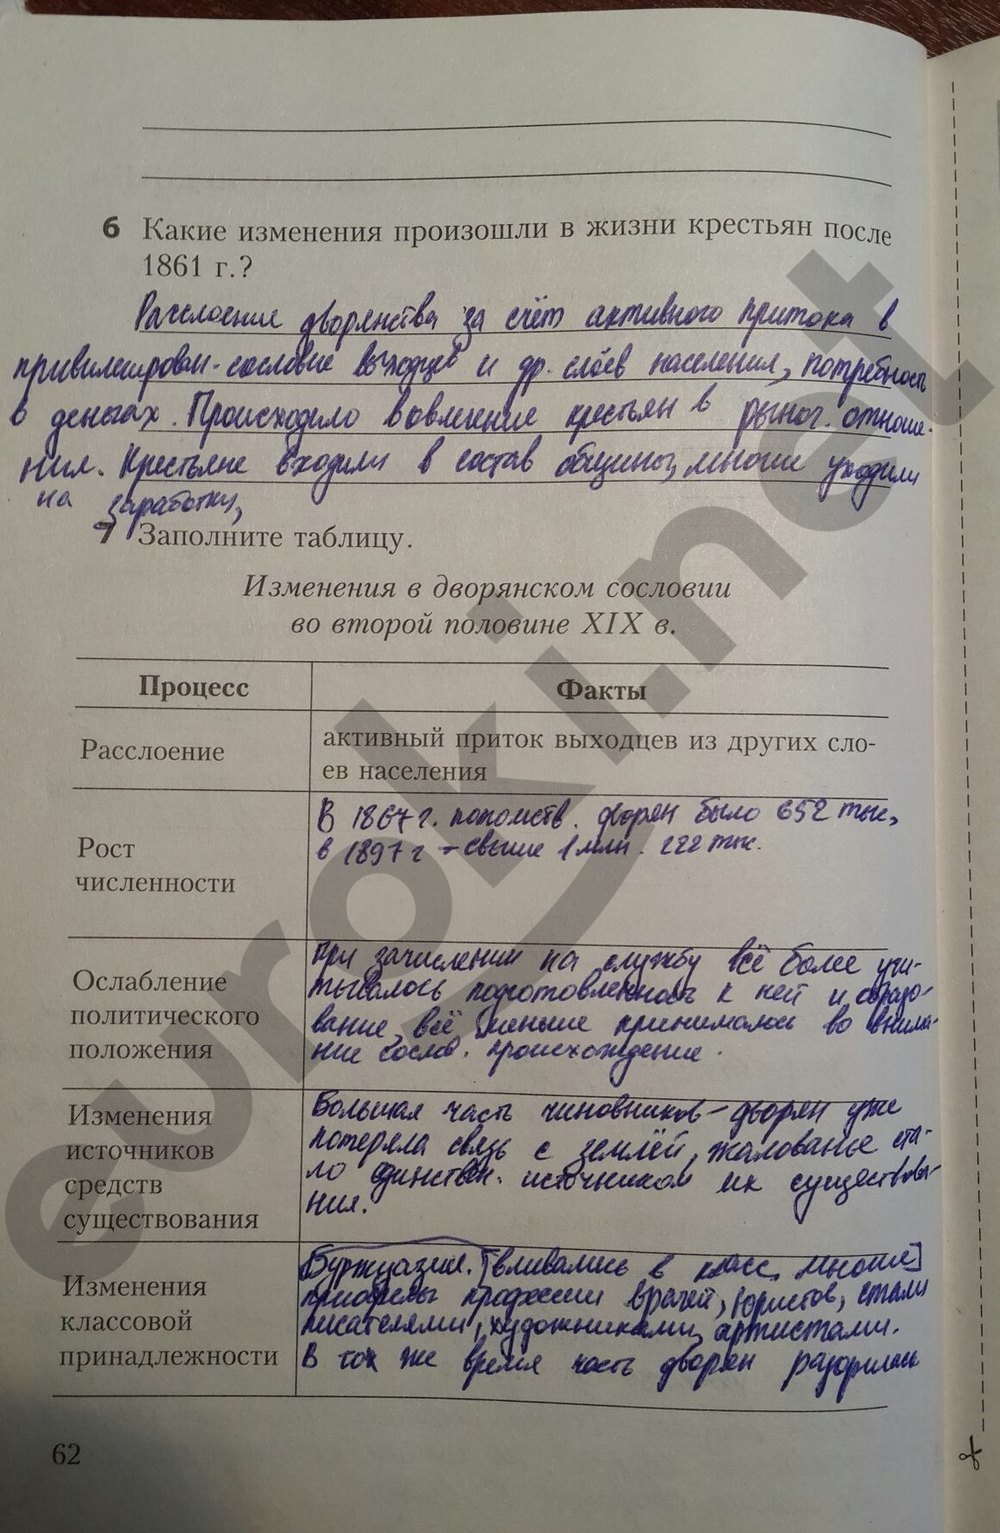 6 Какие изменения произошли в жизни крестьян после
1861 г.?
Расслоение дворянства за счёт активного притока в
привилегирован. сословие выходцев и др. слоёв населения, потребность
в деньгах. Происходило вовлечение крестьян в рыноч. отноше-
ния. Крестьяне входили в состав общины, многие уходили
на заработки,
7 Заполните таблицу.
Изменения в дворянском сословии
во второй половине XIX в.
Процесс Факты
Расслоение
активный приток выходцев из других сло-
ев населения
Рост
численности
В 1867 г. потомств. дворян было 652 тыс,
в 1897 г - свыше 1 млн. 222 тыс.
Ослабление
политического
положения
при зачислении на службу всё более учи-
тывалось подготовленность к ней и образо-
вание, всё меньше принималось во внима-
ние сослов. происхождение.
Изменения
источников
средств
существования
Большая часть чиновников-дворян уже
потеряла связь с землёй, жалованье ста-
ло единствен. источником их существова-
ния.
Изменения
классовой
принадлежности
Буржуазии. вливались в класс, многие
приобрели профессии врачей, юристов, стали
писателями, художниками, артистами.
В то же время часть дворян разорилась
62
euroki.net